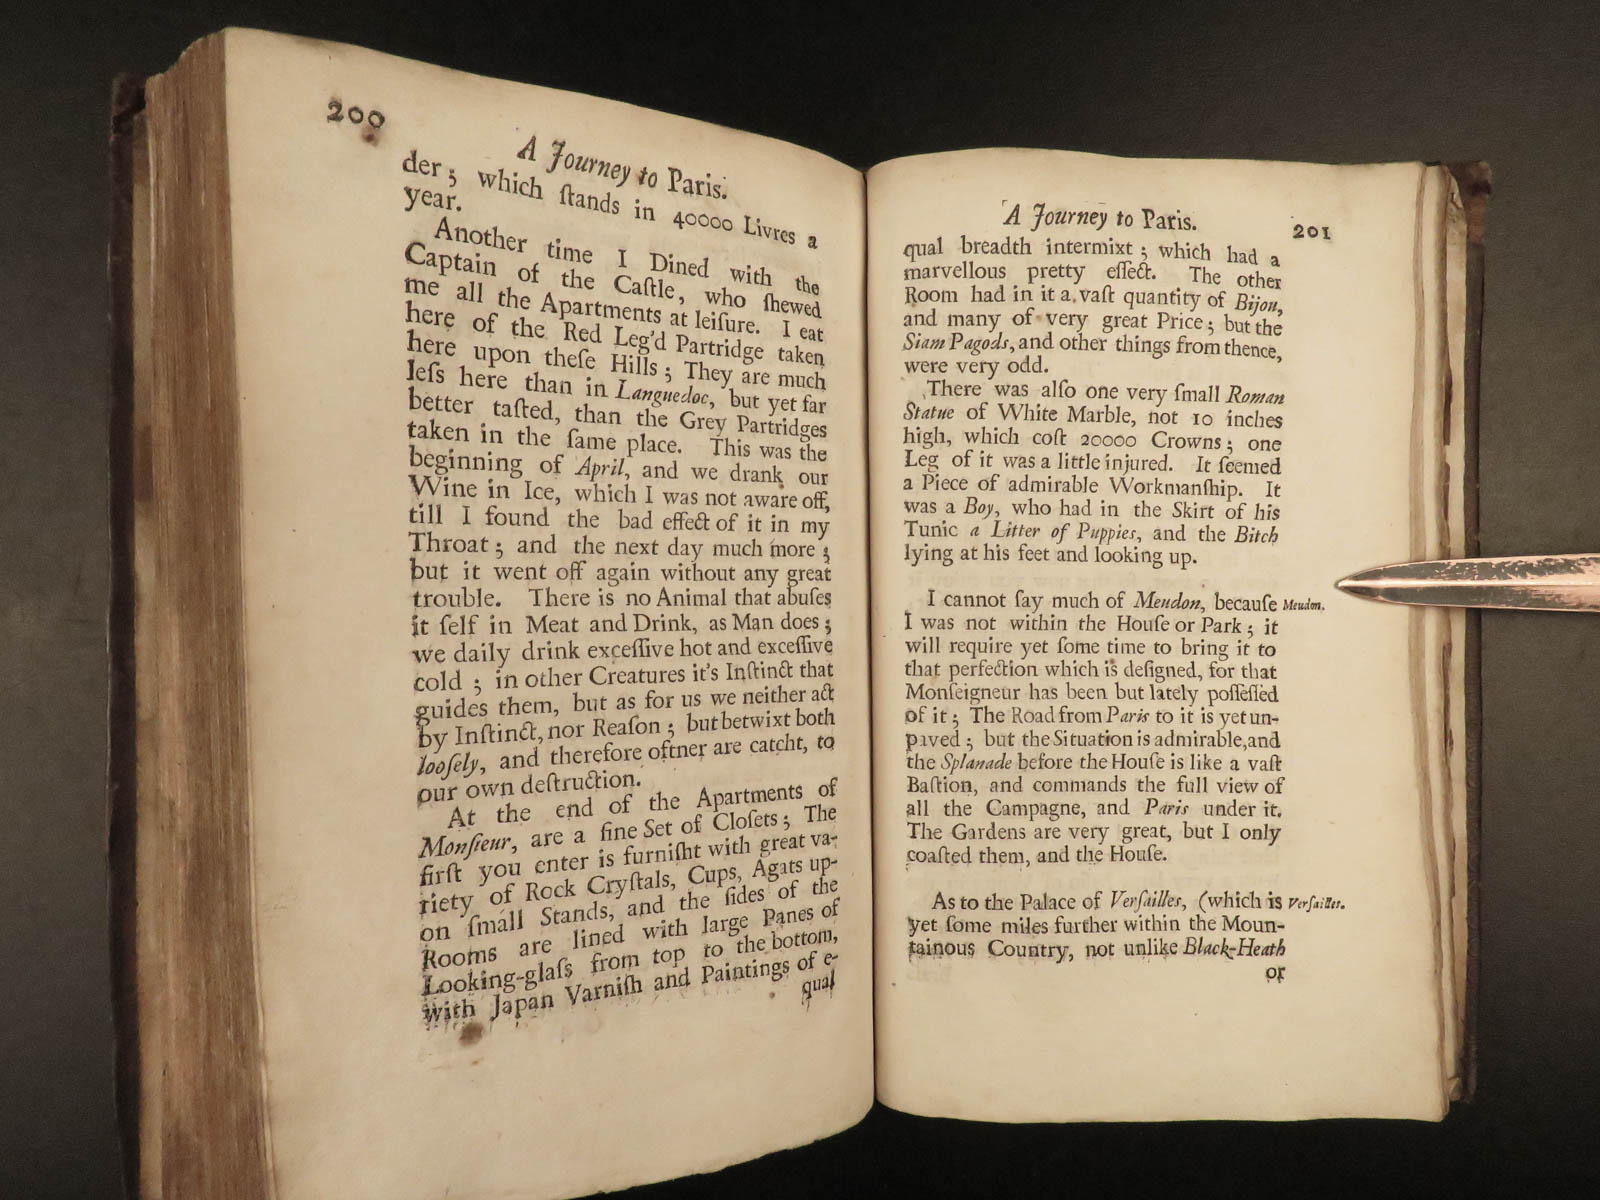 200
A Journey to Paris.
der; which ſtands in 40000 Livres a
year.
Another time I Dined with the
Captain of the Caſtle, who ſhewed
me all the Apartments at leiſure. I eat
here of the Red Leg'd Partridge taken
here upon theſe Hills; They are much
leſs here than in Languedoc, but yet far
better taſted, than the Grey Partridges
taken in the ſame place. This was the
beginning of April, and we drank our
Wine in Ice, which I was not aware off,
till I found the bad effect of it in my
Throat; and the next day much more;
but it went off again without any great
trouble. There is no Animal that abuſes
it ſelf in Meat and Drink, as Man does;
we daily drink exceſſive hot and exceſſive
cold; in other Creatures it's Inſtinct that
guides them, but as for us we neither act
by Inſtinct, nor Reaſon; but betwixt both
looſely, and therefore oftner are catcht, to
our own deſtruction.
At the end of the Apartments of
Monſieur, are a fine Set of Cloſets; The
firſt you enter is furniſht with great va-
riety of Rock Cryſtals, Cups, Agats up-
on ſmall Stands, and the ſides of the
Rooms are lined with large Panes of
Looking-glaſs from top to the bottom,
with Japan Varniſh and Paintings of e-
qual
A Journey to Paris.
201
qual breadth intermixt; which had a
marvellous pretty effect. The other
Room had in it a vaſt quantity of Bijou,
and many of very great Price; but the
Siam Pagods, and other things from thence,
were very odd.
There was alſo one very ſmall Roman
Statue of White Marble, not 10 inches
high, which coſt 20000 Crowns; one
Leg of it was a little injured. It ſeemed
a Piece of admirable Workmanſhip. It
was a Boy, who had in the Skirt of his
Tunic a Litter of Puppies, and the Bitch
lying at his feet and looking up.
I cannot ſay much of Meudon, becauſe Meudon.
I was not within the Houſe or Park; it
will require yet ſome time to bring it to
that perfection which is deſigned, for that
Monſeigneur has been but lately poſſeſſed
of it; The Road from Paris to it is yet un-
paved; but the Situation is admirable, and
the Splanade before the Houſe is like a vaſt
Baſtion, and commands the full view of
all the Campagne, and Paris under it.
The Gardens are very great, but I only
coaſted them, and the Houſe.
As to the Palace of Verſailles, (which is Verſailles.
yet ſome miles further within the Moun-
tainous Country, not unlike Black-Heath
or